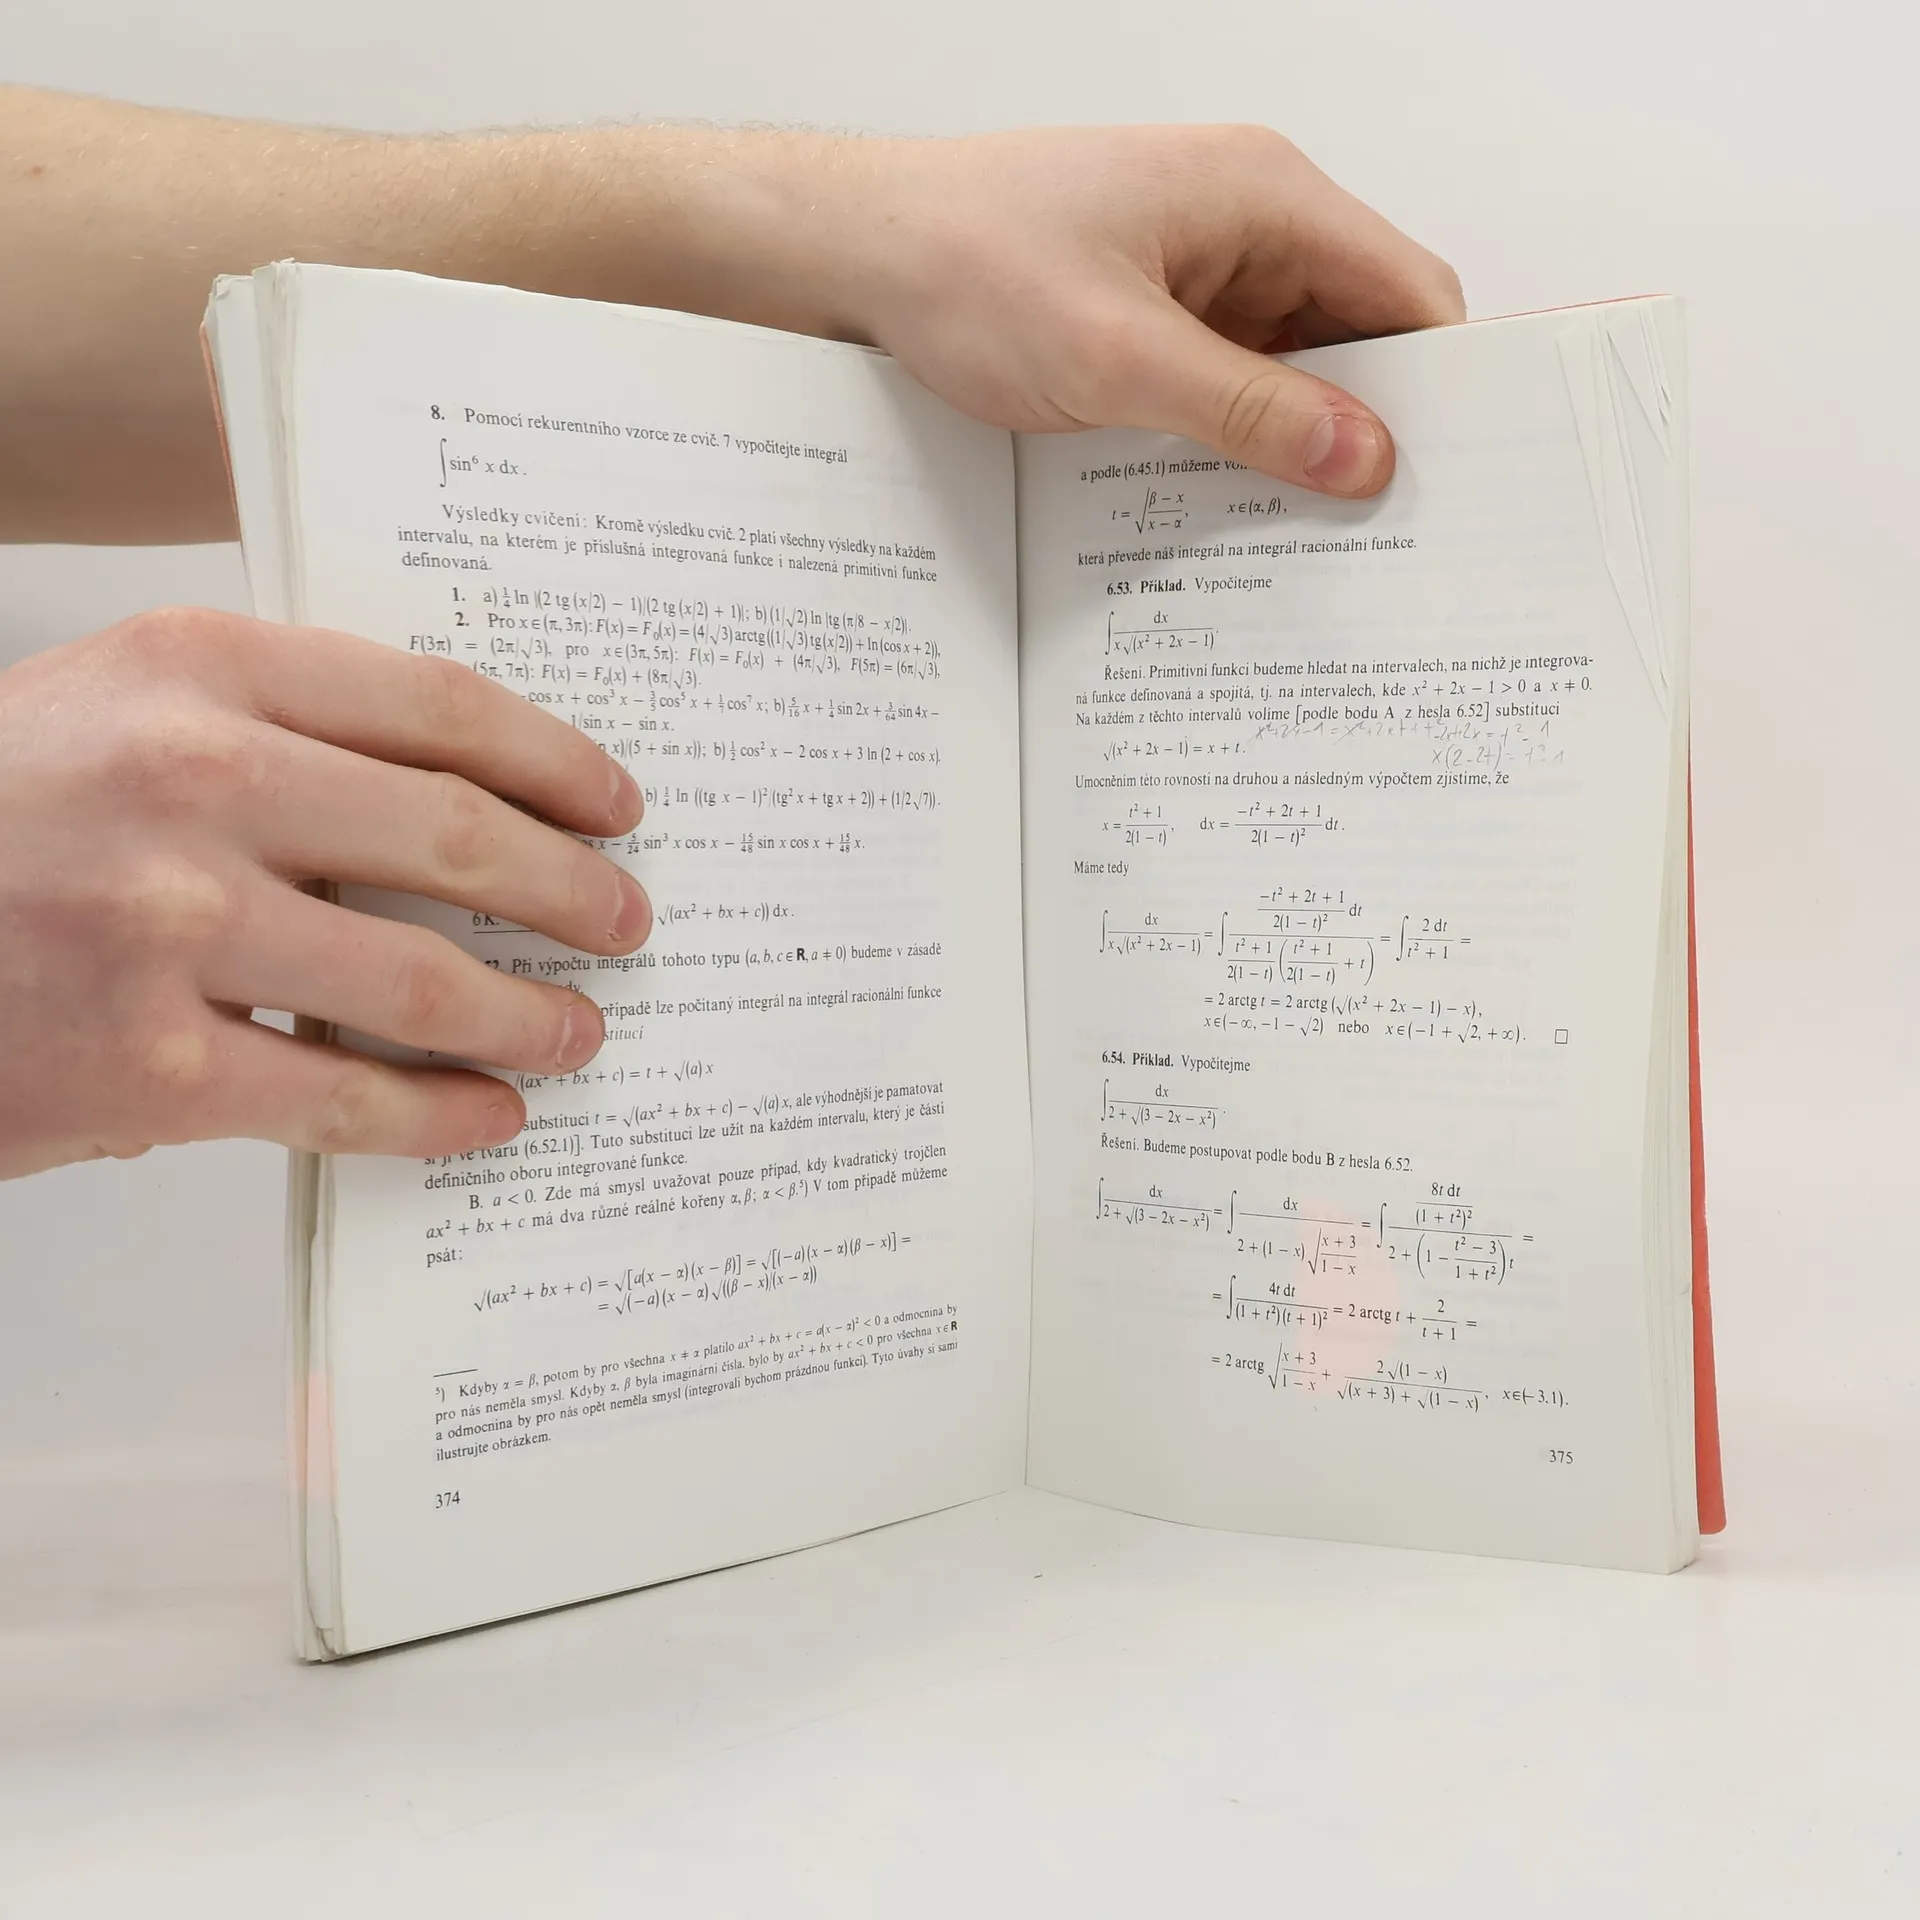 8. Pomocí rekurentního vzorce ze cvič. 7 vypočítejte integrál
∫ sin⁶ x dx.
Výsledky cvičení: Kromě výsledku cvič. 2 platí všechny výsledky na každém
intervalu, na kterém je příslušná integrovaná funkce i nalezená primitivní funkce
definovaná.
1. a) ¼ ln |(2 tg (x/2) − 1)/(2 tg (x/2) + 1)|; b) (1/√2) ln |tg (π/8 − x/2)|.
2. Pro x ∈ (π, 3π): F(x) = F₀(x) = (4/√3) arctg((1/√3) tg(x/2)) + ln(cos x + 2)),
F(3π) = (2π/√3), pro x ∈ (3π, 5π): F(x) = F₀(x) + (4π/√3), F(5π) = (6π/√3),
(5π, 7π): F(x) = F₀(x) + (8π/√3).
cos x + cos³ x − ⅗ cos⁵ x + ⅐ cos⁷ x; b) 5/16 x + ¼ sin 2x + 3/64 sin 4x −
1/sin x − sin x.
x)/(5 + sin x)); b) ½ cos² x − 2 cos x + 3 ln (2 + cos x).
b) ¼ ln ((tg x − 1)²/(tg² x + tg x + 2)) + (1/2√7)).
x − 5/24 sin³ x cos x − 15/48 sin x cos x + 15/48 x.
6 K. √(ax² + bx + c)) dx.
Při výpočtu integrálů tohoto typu (a, b, c ∈ R, a ≠ 0) budeme v zásadě
případě lze počítaný integrál na integrál racionální funkce
√(ax² + bx + c) = t + √(a) x
substituci t = √(ax² + bx + c) − √(a) x, ale výhodnější je pamatovat
si ji ve tvaru (6.52.1)]. Tuto substituci lze užít na každém intervalu, který je částí
definičního oboru integrované funkce.
B. a < 0. Zde má smysl uvažovat pouze případ, kdy kvadratický trojčlen
ax² + bx + c má dva různé reálné kořeny α, β; α < β.⁵) V tom případě můžeme
psát:
√(ax² + bx + c) = √[a(x − α)(x − β)] = √[(−a)(x − α)(β − x)] =
= √(−a)(x − α) √((β − x)/(x − α))
⁵) Kdyby α = β, potom by pro všechna x ≠ α platilo ax² + bx + c = a(x − α)² < 0 a odmocnina by
pro nás neměla smysl. Kdyby α, β byla imaginární čísla, bylo by ax² + bx + c < 0 pro všechna x ∈ R
a odmocnina by pro nás opět neměla smysl (integrovali bychom prázdnou funkci). Tyto úvahy si sami
ilustrujte obrázkem.
374
a podle (6.45.1) můžeme
t = √((β − x)/(x − α)), x ∈ (α, β),
která převede náš integrál na integrál racionální funkce.
6.53. Příklad. Vypočítejme
∫ dx/(x √(x² + 2x − 1)).
Řešení. Primitivní funkci budeme hledat na intervalech, na nichž je integrova-
ná funkce definovaná a spojitá, tj. na intervalech, kde x² + 2x − 1 > 0 a x ≠ 0.
Na každém z těchto intervalů volíme [podle bodu A z hesla 6.52] substituci
√(x² + 2x − 1) = x + t.
Umocněním této rovnosti na druhou a následným výpočtem zjistíme, že
x = (t² + 1)/(2(1 − t)), dx = (−t² + 2t + 1)/(2(1 − t)²) dt.
Máme tedy
∫ dx/(x √(x² + 2x − 1)) = ∫ ((−t² + 2t + 1)/(2(1 − t)²) dt)/((t² + 1)/(2(1 − t)) ((t² + 1)/(2(1 − t)) + t)) = ∫ 2 dt/(t² + 1) =
= 2 arctg t = 2 arctg (√(x² + 2x − 1) − x),
x ∈ (−∞, −1 − √2) nebo x ∈ (−1 + √2, +∞). □
6.54. Příklad. Vypočítejme
∫ dx/(2 + √(3 − 2x − x²)).
Řešení. Budeme postupovat podle bodu B z hesla 6.52.
∫ dx/(2 + √(3 − 2x − x²)) = ∫ dx/(2 + (1 − x) √((x + 3)/(1 − x))) = ∫ (8t dt/(1 + t²)²)/(2 + (1 − (t² − 3)/(1 + t²)) t) =
= ∫ 4t dt/((1 + t²)(t + 1)²) = 2 arctg t + 2/(t + 1) =
= 2 arctg √((x + 3)/(1 − x)) + 2√(1 − x)/(√(x + 3) + √(1 − x)), x ∈ (−3, 1).
375